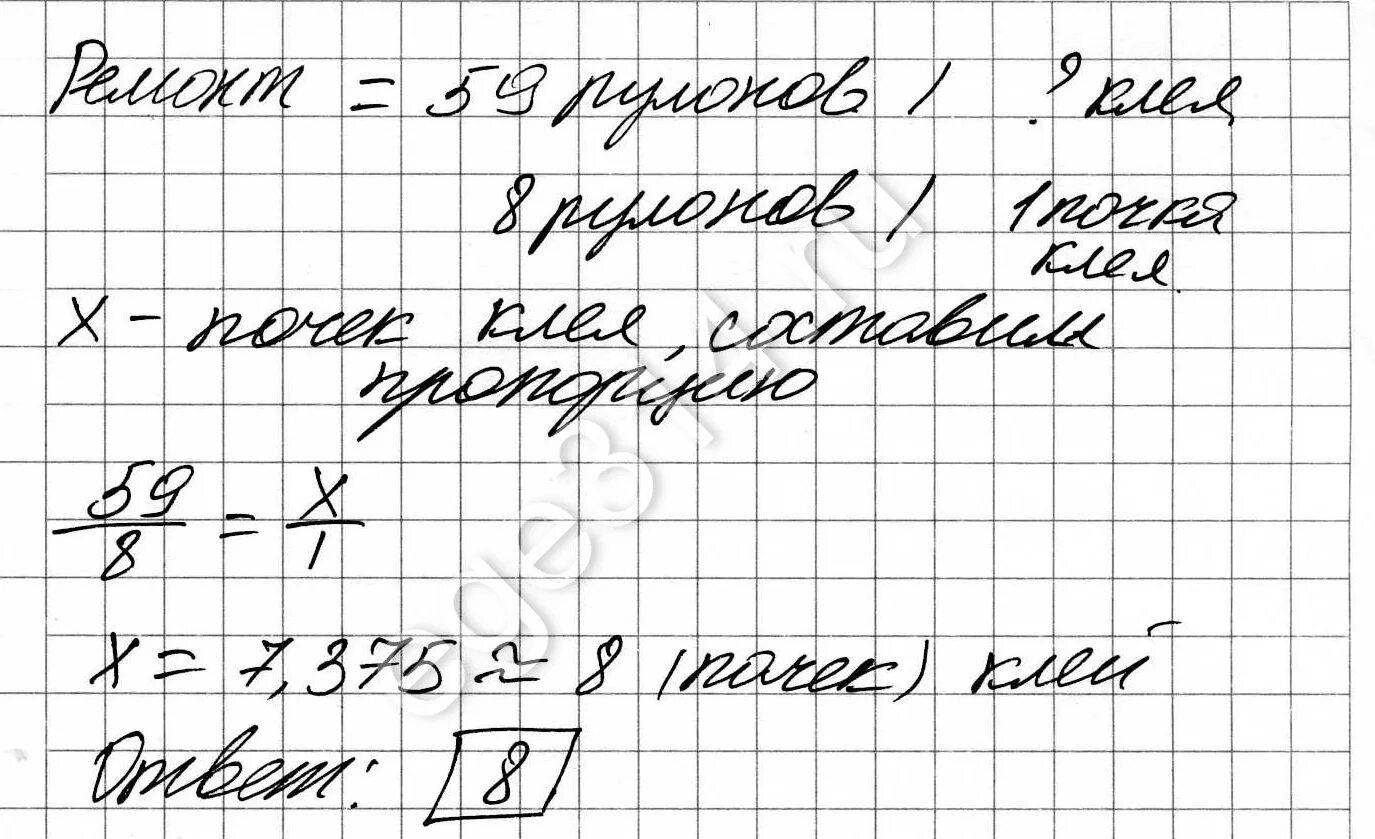 Ремонт = 59 рулонов / ? клея
8 рулонов / 1 почка
клея.
х - почек клея, составим
пропорцию
59/8 = х/1
х = 7,375 ≈ 8 (почек) клей
Ответ: 8
ege314.ru